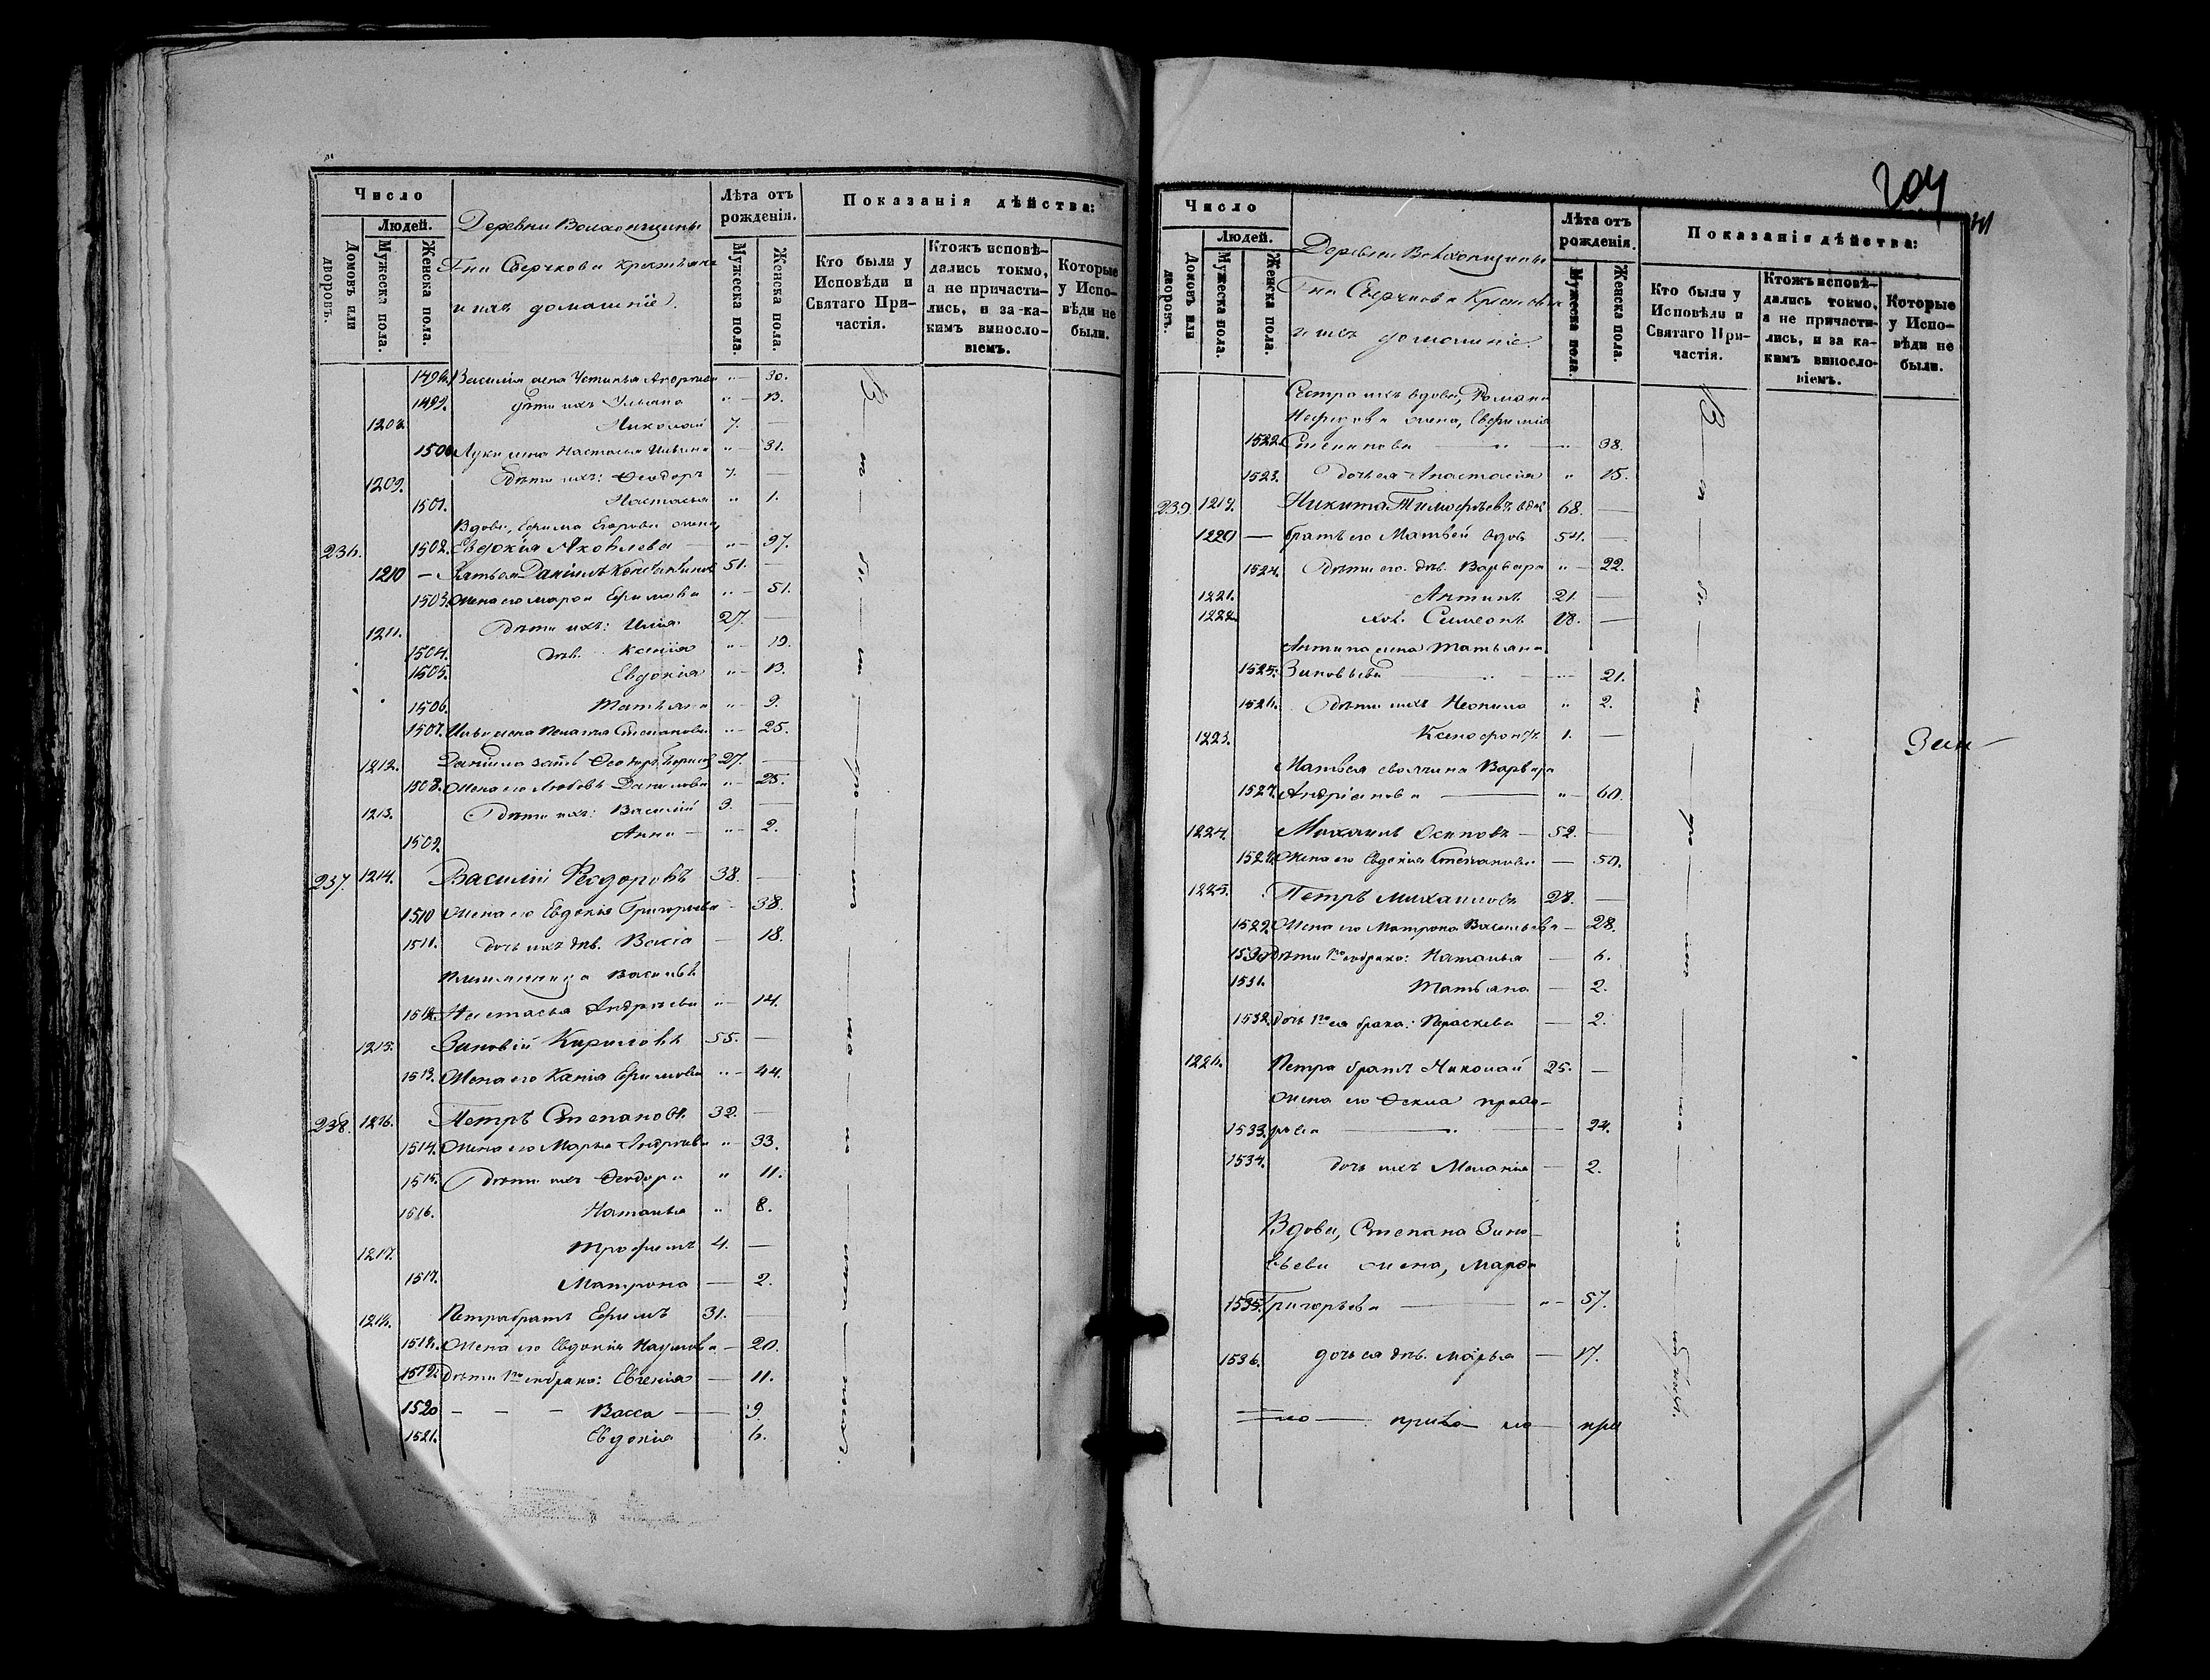 Число
Людей.
Домовъ или дворовъ.
Мужеска пола.
Женска пола.
Деревни Волхонщины
Г-ни Сверчкова Крестьяне
и ихъ домашніе.
Лѣта отъ рожденія.
Мужеска пола.
Женска пола.
Показанія дѣйства:
Кто были у Исповѣди и Святаго Причастія.
Ктожъ исповѣдались токмо, а не причастились, и за какимъ винословіемъ.
Которые у Исповѣди не были.
1498. Василія жена Устинья Андреева " — 30.
1499. дѣти ихъ Ульяна " — 13.
1208. Николай 7. —
1500 Луки жена Настасья Ильина " — 31.
1209. Дѣти ихъ: Ѳеодоръ 7. —
1501. Настасья " 1.
Вдова, Ефима Егорова жена,
236. 1502. Евдокія Яковлева " — 97.
1210 — Зятья Даніилъ Константиновъ 51. —
1503. Жена его Марѳа Ефимова " — 51.
1211. Дѣти ихъ: Илья 27. —
1504. дѣв. Ксенія " — 19.
1505. Евдокія " — 13.
1506. Татьяна " — 9.
1507. Ильи жена Пелагія Степанова " — 25.
1212. Даніила зять Ѳеодоръ 27. —
1508. Жена его Любовь Данилова " — 25.
1213. Дѣти ихъ: Василій 3. —
1509. Анна — " — 2.
237. 1214. Василій Ѳеодоровъ 38. —
1510 Жена его Евдокія Григорьева — 38.
1511. дочь ихъ дѣв. Васса — 18.
Племянница Василья
1512. Настасья Андреева " — 14.
1215. Зиновій Кириловъ 55. —
1513. Жена его Ефимова " — 44.
238. 1216. Петръ Степановъ 32. —
1514. Жена его Марья Андреева " — 33.
1515. Дѣти ихъ Ѳеодора " 11.
1516. Наталья " 8.
1217. Трофимъ 4. —
1517. Матрона — 2.
1218. Петра братъ Ефимъ 31. —
1518. Жена его Евдокія Наумова — 20.
1519. Дѣти 1го ихъ брака: Евгенія — 11.
1520 — — — Васса — 9.
1521. Евдокія 6.
204
Число
Людей.
Домовъ или дворовъ.
Мужеска пола.
Женска пола.
Деревни Волхонщины
Г-ни Сверчкова Крестьяне
и ихъ домашніе.
Лѣта отъ рожденія.
Мужеска пола.
Женска пола.
Показанія дѣйства:
Кто были у Исповѣди и Святаго Причастія.
Ктожъ исповѣдались токмо, а не причастились, и за какимъ винословіемъ.
Которые у Исповѣди не были.
Сестра ихъ вдова, Романа
Нефедова жена, Евфимія
1522. Степанова — " — 38.
1523. Дочь ея Анастасія " 15.
239 1219. Никита Тимофѣевъ вдов 68. —
1220 — братъ его Матвей вдов 54. —
1524. Дѣти его дѣв. Варвара " — 22.
1221. Антипъ 21 —
1222. хол. Симеонъ 18. —
Антипа жена Татьяна
1525. Зиновьева — 21.
1526. Дѣти ихъ Неонила " 2.
1223. Ксенофонтъ 1. —
Матвея своячина Варвара
1527. Андріанова — " — 60.
1224. Михаилъ Осиповъ — 52. —
1528. Жена его Евдокія Степанова — 50.
1225. Петръ Михаиловъ 28. —
1529. Жена его Матрона Васильева — 28.
1530 Дѣти 1го брака: Наталья — 6.
1531. Татьяна — 2.
1532. дочь 1го ея брака: Параскева — 2.
1226. Петра братъ Николай 25. —
Жена его Ѳекла
1533. — 24.
1534. дочь ихъ Меланія — 2.
Вдова, Степана Зино-
вьева жена, Марѳа
1535. Григорьева — " — 57.
1536. дочь ея дѣв. Марья — 17.